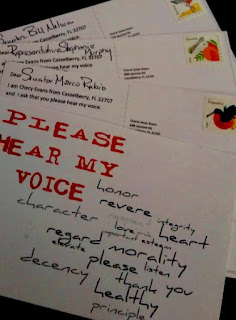 Senator Bill Nelson
from Casselberry, FL 32707
hear my voice.
Representative Stephanie
Murphy
from Casselberry, FL 32707
hear my voice.
Dear Senator Marco Rubio
I am Chery Evans from Casselberry, FL 32707
and I ask that you please hear my voice.
PLEASE
HEAR MY
VOICE
honor
revere integrity
character love heart
important esteem
regard morality
elevate please listen
decency thank you
healthy
principle